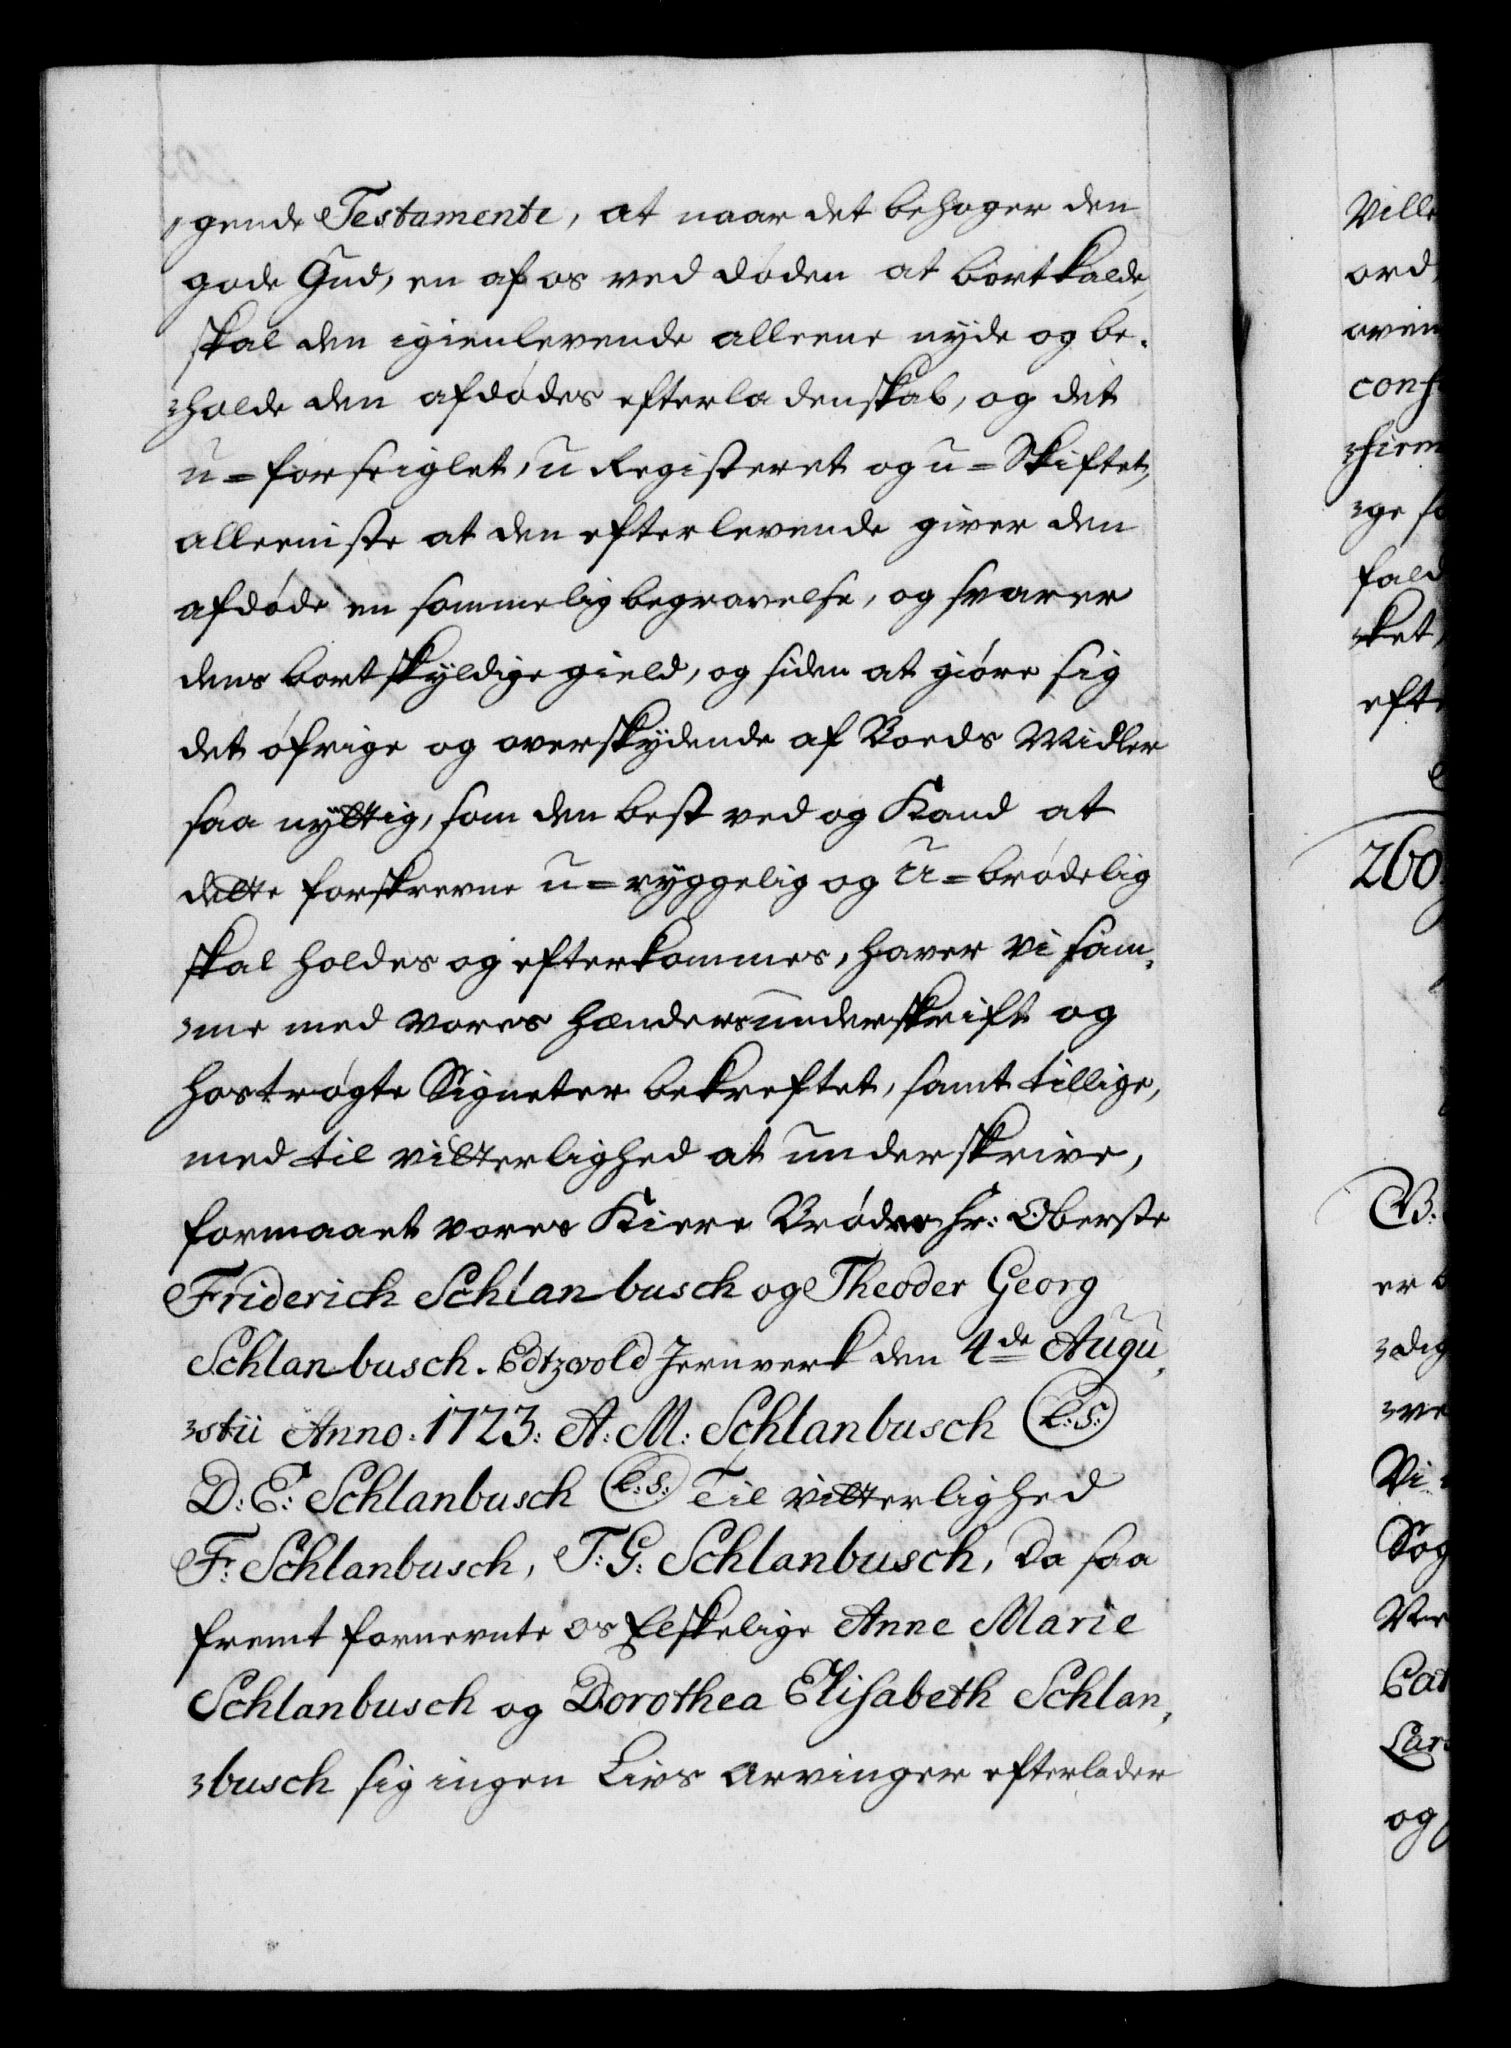 gende Testamente, at naar det behager den
gode Gud, en af os ved døden at bortkalde,
skal den igienlevende alleene nyde og be-
holde den afdødes efterladenskab, og det
u=forseiglet, u Registeret og u=Skiftet,
alleeniste at den efterlevende giver den
afdøde en sømmelig begravelse, og svarer
dens bortskyldige gield, og siden at giøre sig
det øfrige og overskydende af Boeds Midler
saa nyttig, som den best ved og Kand at
dette forskrevne u=ryggelig og u=brødelig
skal holdes og efterkommes, haver vi sam-
me med vores hænders underskrift og
hostrøgte Signeter bekreftet, samt tillige,
med til vitterlighed at underskrive,
formaaet vores Kiere Brødre Hr: Oberste
Friderich Schlanbusch og Theoder Georg
Schlanbusch. Edtzvold Jernverk den 4de Augu-
stii Anno. 1723: A: M: Schlanbusch (L:S:)
D: E: Schlanbusch (L:S:) Til vitterlighed
Fr: Schlanbusch, T: G: Schlanbusch, da saa
fremt fornevnte os Elskelige Anne Marie
Schlanbusch og Dorothea Elisabeth Schlan-
busch sig ingen Livs Arvinger efterlader
Ville
ord
efte
260
B:
Vi
og